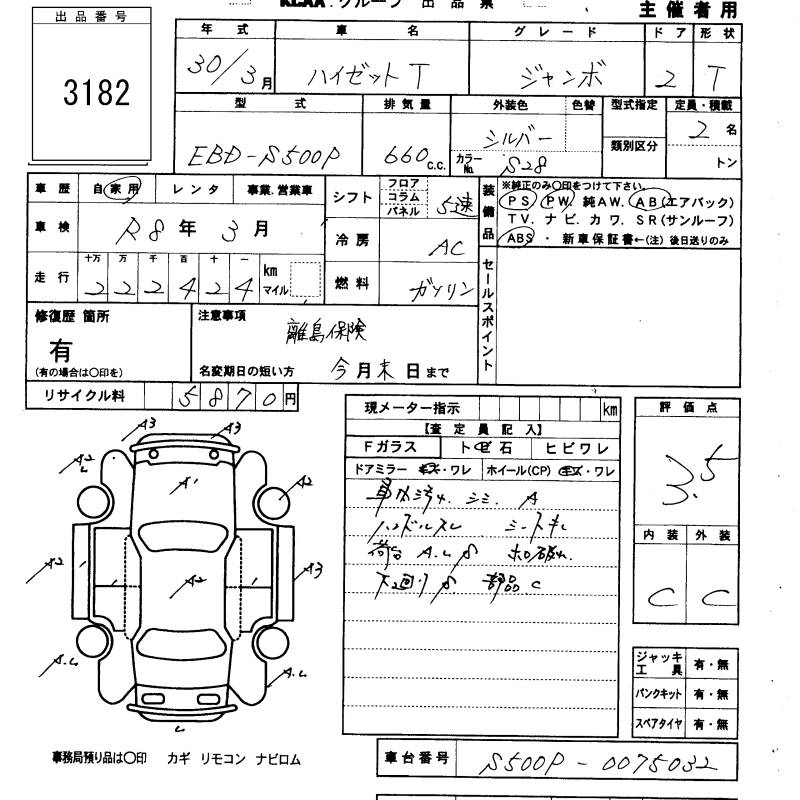 KCAA.グループ 出品票
主催者用
出品番号
3182
年式 車名 グレード ドア 形状
30/3月 ハイゼットT ジャンボ 2 T
型式 排気量 外装色 色替 型式指定 定員・積載
EBD-S500P 660c.c. シルバー 類別区分 2名
カラーNo. S28 トン
車歴 自家用 レンタ 事業.営業車
車検 R8年 3月
走行 十万 万 千 百 十 一
222424 km マイル
シフト フロア コラム パネル 5速
冷房 AC
燃料 ガソリン
装備品 ※純正のみ○印をつけて下さい。
PS PW 純AW. AB(エアバック)
TV. ナビ. カワ. SR(サンルーフ)
ABS ・ 新車保証書←(注) 後日送りのみ
セールスポイント
修復歴 箇所
有
(有の場合は○印を)
注意事項
離島保険
名変期日の短い方 今月末日まで
リサイクル料 5870円
現メーター指示 km
【査定員記入】
Fガラス トビ石 ヒビワレ
ドアミラー キズ・ワレ ホイール(CP) キズ・ワレ
車内汚れ シミ A
ハンドルスレ シートキレ
荷台 A.L S ホロ破れ
下回りS 部品C
評価点
3.5
内装 外装
C C
ジャッキ工具 有・無
パンクキット 有・無
スペアタイヤ 有・無
A3 A3
A2 L A1 A2
A2 A2 A3
A.L A.L
L
事務局預り品は○印 カギ リモコン ナビロム
車台番号 S500P-0075032